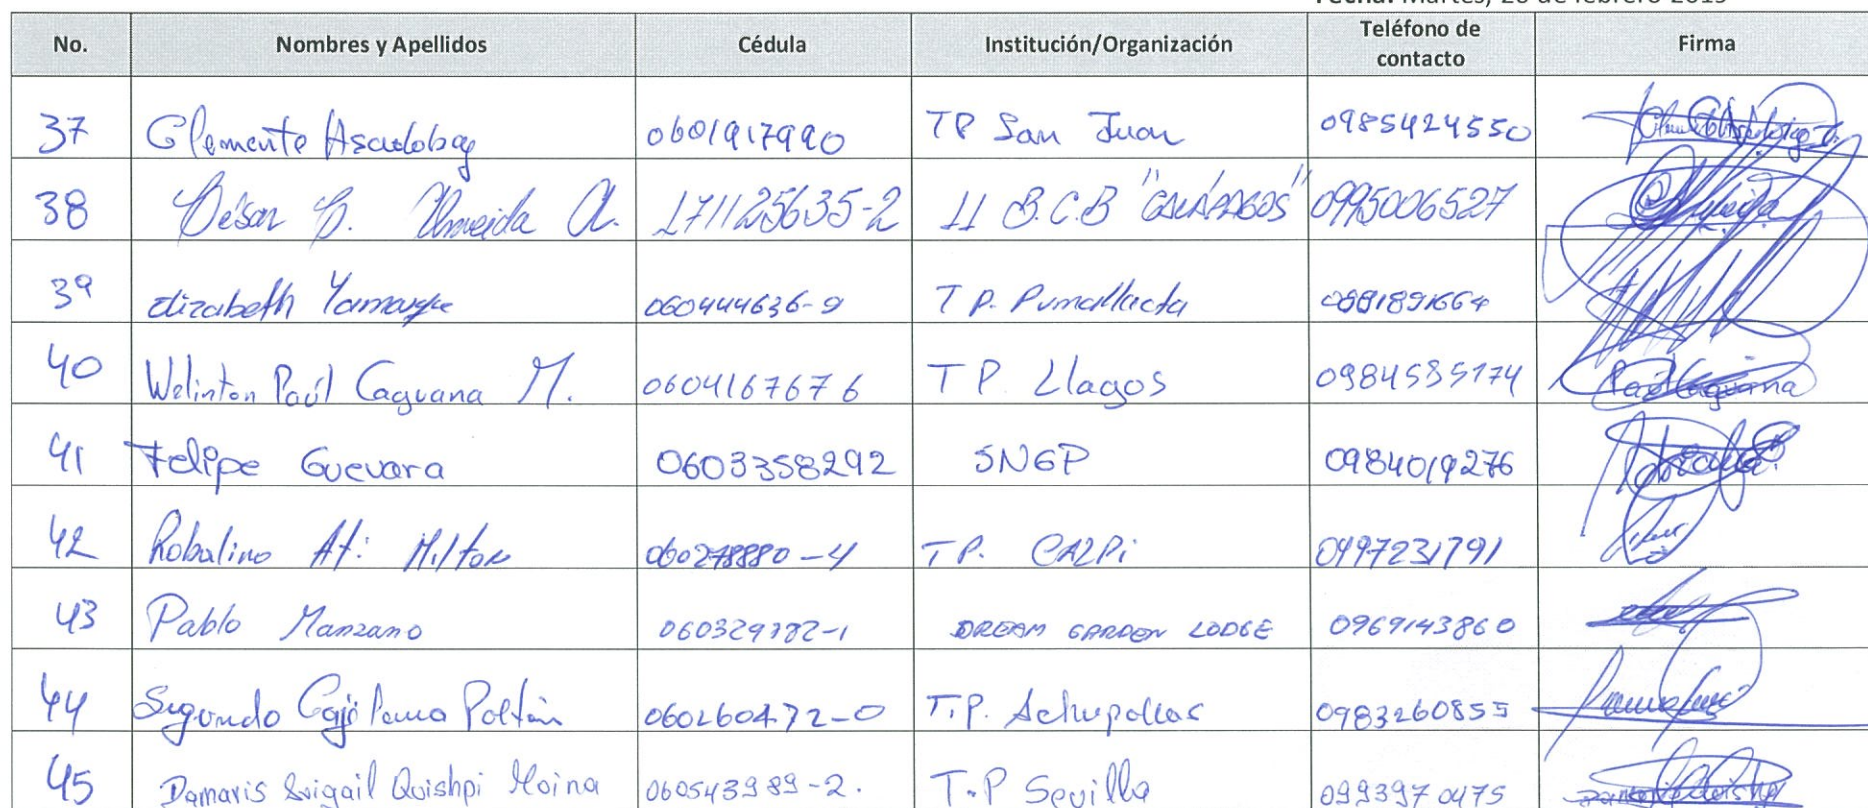 Fecha: Martes, 26 de febrero 2019
No. Nombres y Apellidos Cédula Institución/Organización Teléfono de contacto Firma
37 Clemente Asadobay 0601917990 TP San Juan 0985424550
38 César B. Almeida A. 171125635-2 11 B.C.B "GALÁPAGOS" 0995006527
39 Elizabeth 060444636-9 T P. Pumallacta
40 Welinton Paúl Caguana M. 0604167676 T P Llagos 0984585174 Paúl Caguana
41 Felipe Guevara 0603358292 SNGP 0984019276
42 Robalino At: Milton T P. CALPi 0997231791
43 Pablo Manzano DREAM GARDEN LODGE 0969143860
44 Segundo 060260472-0 T.P. Achupallas 0983260855
45 Damaris Quishpi Moina 060543989-2. T.P Sevilla 0993970475